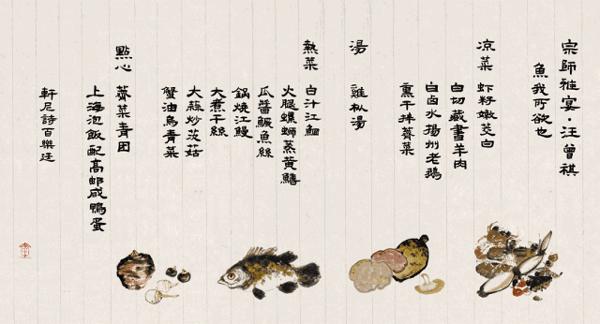 宗師雅宴·汪曾祺
魚我所欲也
凉菜 虾籽嫩茭白
白切藏書羊肉
白卤水揚州老鵝
熏干拌薺菜
湯 雞枞湯
熱菜 白汁江鮰
火腿螺螄蒸黃鱔
瓜醬鱖魚絲
鍋燒江鰻
大煮干絲
大蒜炒茨菇
蟹油烏青菜
點心 薺菜青团
上海泡飯配高邮咸鴨蛋
軒尼詩百樂廷